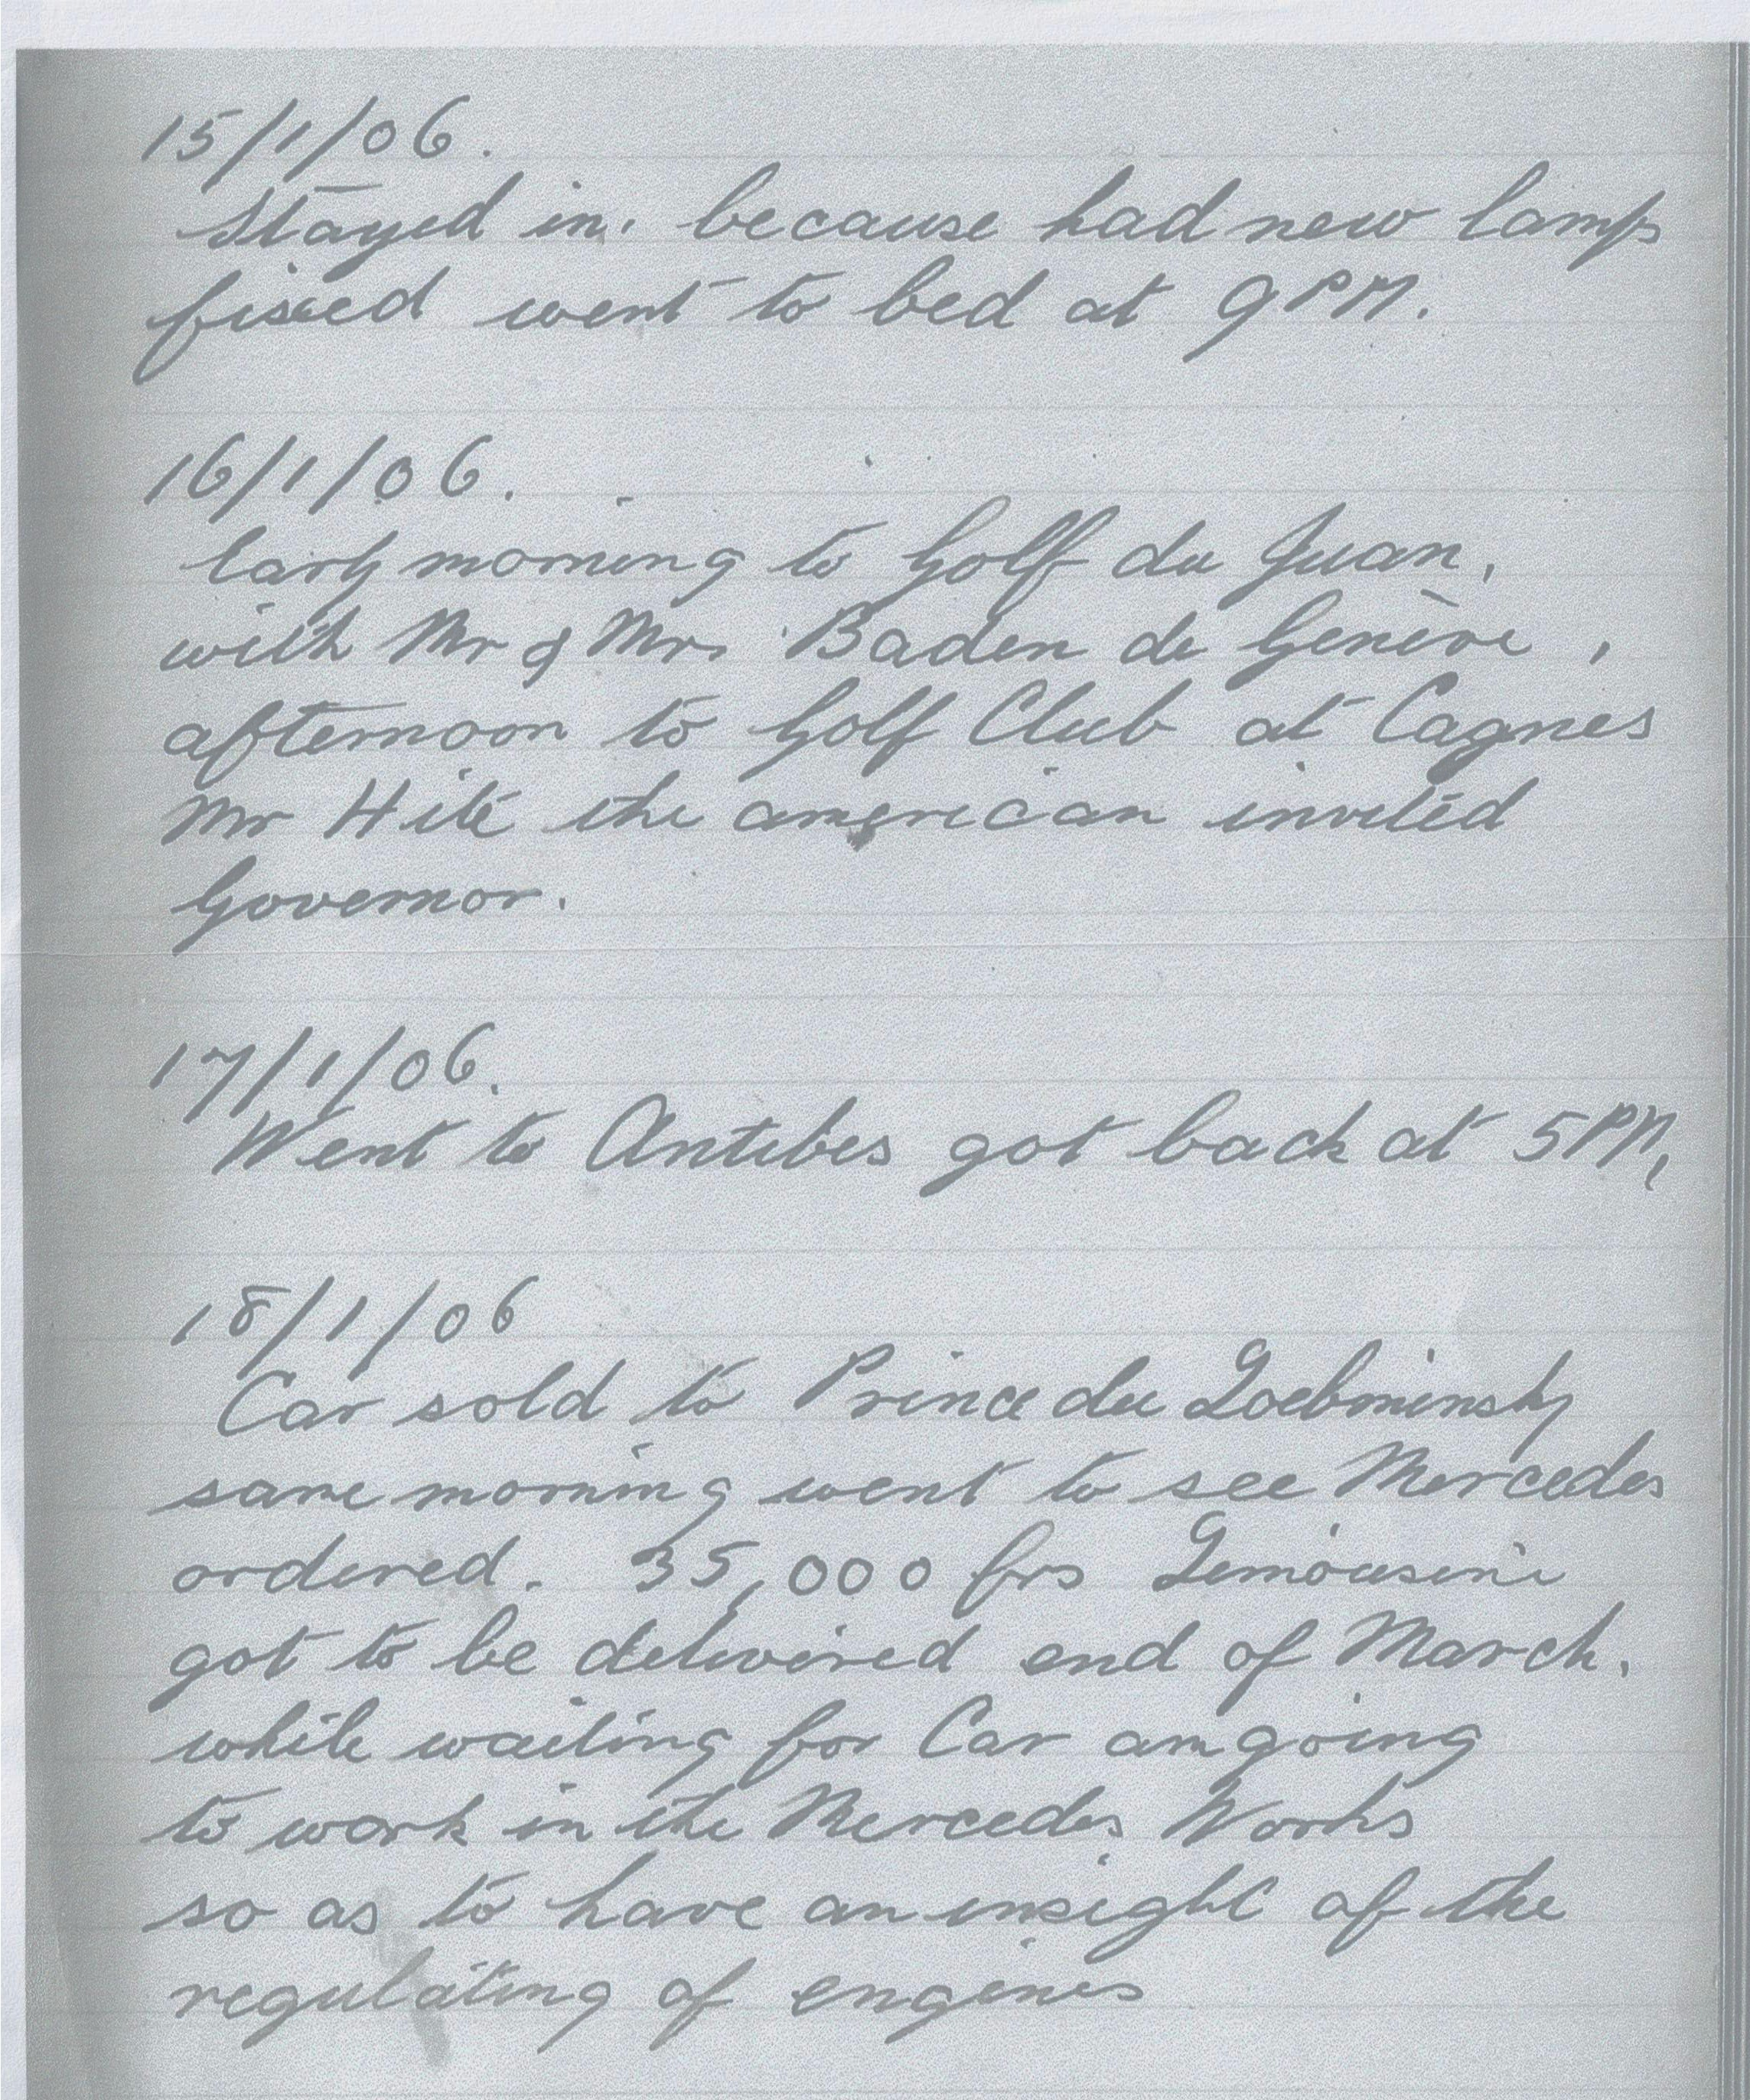 15/1/06.
Stayed in, because had new lamps
fixed went to bed at 9 PM.
16/1/06.
Early morning to Golf du Juan,
with Mr & Mrs Baden de Genève,
afternoon to Golf Club at Cagnes
Mr Hite the american invited
Governor.
17/1/06.
Went to Antibes got back at 5 PM,
18/1/06
Car sold to Prince du
same morning went to see Mercedes
ordered. 35,000 frs Limousine
got to be delivered end of March.
while waiting for Car am going
to work in the Mercedes Works
so as to have an insight of the
regulating of engines